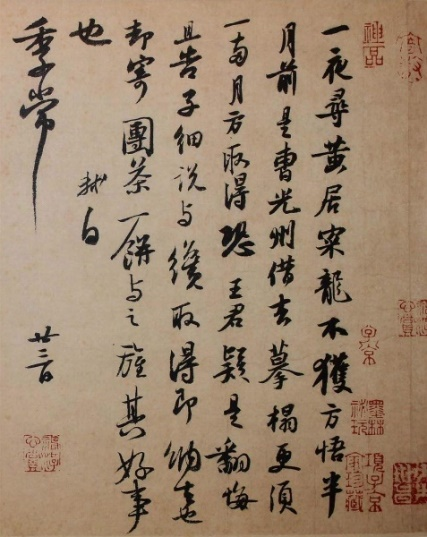 一夜尋黃居寀龍不獲方悟半
月前是曹光州借去摹榻更須
一兩月方取得恐王君疑是翻悔
且告子細說與纔取得即納去也
却寄團茶一餅與之旌其好事
也
軾白
季常
廿三日
神品
項子京
家珍藏